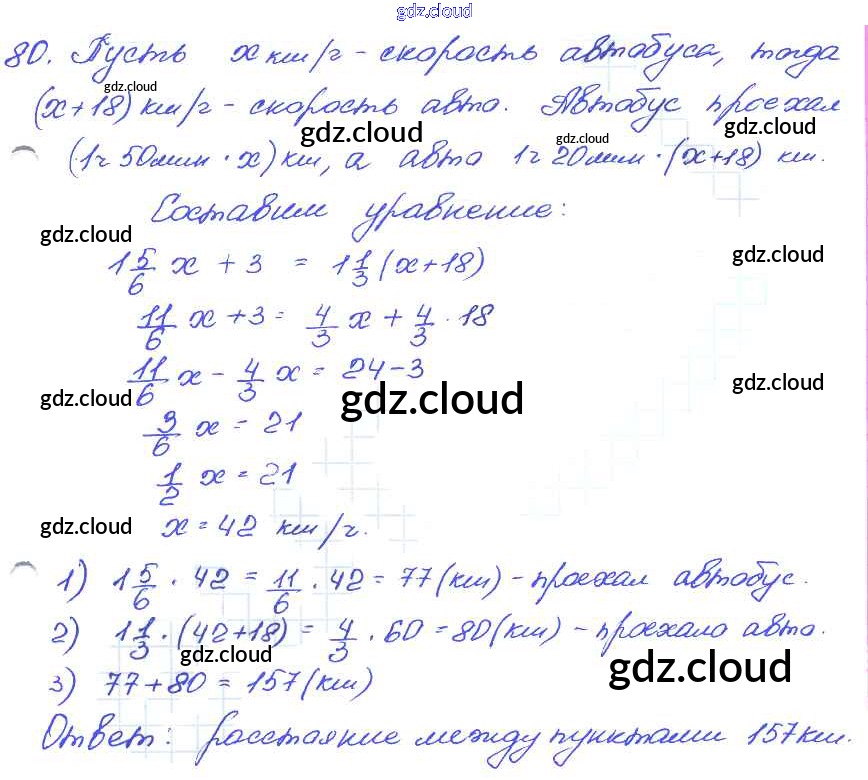 gdz.cloud
80. Пусть x км/ч - скорость автобуса, тогда
gdz.cloud
(x+18) км/ч - скорость авто. Автобус проехал
gdz.cloud gdz.cloud gdz.cloud
(1ч 50мин · x) км, а авто 1ч 20мин · (x+18) км.
Составим уравнение:
gdz.cloud gdz.cloud
1 5/6 x + 3 = 1 1/3 (x+18)
11/6 x + 3 = 4/3 x + 4/3 · 18
11/6 x - 4/3 x = 24-3
gdz.cloud gdz.cloud gdz.cloud
3/6 x = 21
1/2 x = 21
gdz.cloud x = 42 км/ч.
1) 1 5/6 · 42 = 11/6 · 42 = 77 (км) - проехал автобус.
2) 1 1/3 · (42+18) = 4/3 · 60 = 80 (км) - проехало авто.
gdz.cloud gdz.cloud
3) 77+80 = 157 (км)
Ответ: расстояние между пунктами 157 км.